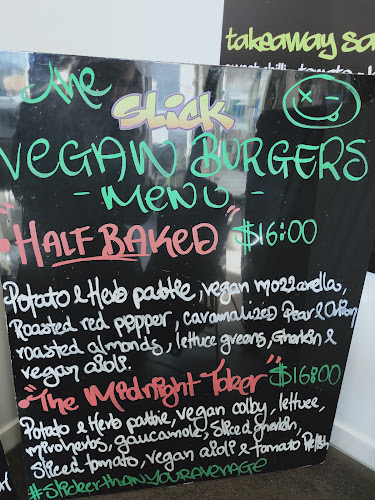 takeaway sa
the
SLICK
VEGAN BURGERS
- MENU -
"HALF BAKED" $16:00
Potato & Herb pattie, vegan mozzarella,
Roasted red pepper, caramalized Pear & Onion
roasted almonds, lettuce greens, Gherkin &
vegan aioli.
"The Midnight Toker" $16:00
Potato & Herb pattie, vegan colby, lettuce,
microherbs, gaucamole, sliced gherkin,
sliced tomato, vegan aioli & tomato Relish
#slickerthanyouraverage